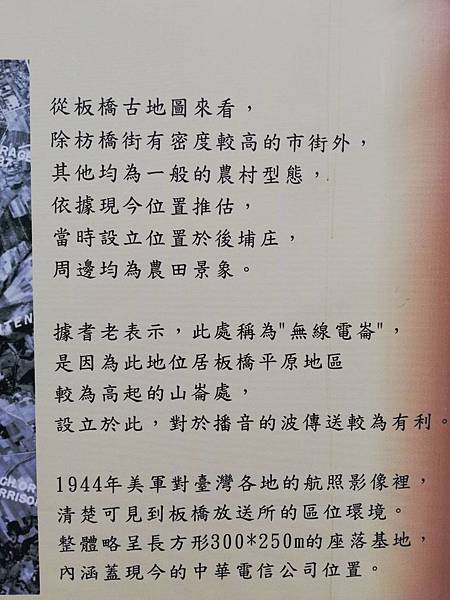 從板橋古地圖來看，
除枋橋街有密度較高的市街外，
其他均為一般的農村型態，
依據現今位置推估，
當時設立位置於後埔庄，
周邊均為農田景象。
據耆老表示，此處稱為"無線電崙"，
是因為此地位居板橋平原地區
較為高起的山崙處，
設立於此，對於播音的波傳送較為有利。
1944年美軍對臺灣各地的航照影像裡，
清楚可見到板橋放送所的區位環境。
整體略呈長方形300*250m的座落基地，
內涵蓋現今的中華電信公司位置。